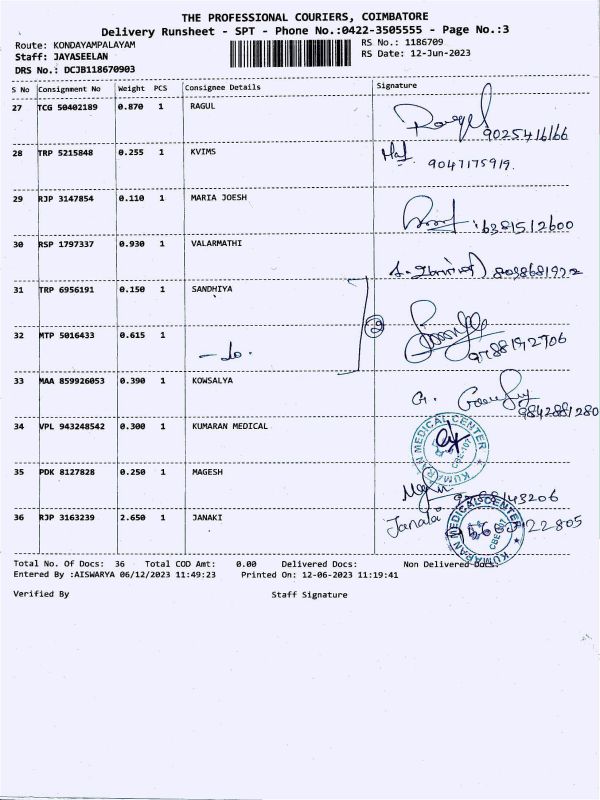 THE PROFESSIONAL COURIERS, COIMBATORE
Delivery Runsheet - SPT - Phone No.:0422-3505555 - Page No.:3
Route: KONDAYAMPALAYAM RS No.: 1186709
Staff: JAYASEELAN RS Date: 12-Jun-2023
DRS No.: DCJB118670903
S No Consignment No Weight PCS Consignee Details Signature
27 TCG 50402189 0.870 1 RAGUL
9025416166
28 TRP 5215848 0.255 1 KVIMS
9047175919.
29 RJP 3147854 0.110 1 MARIA JOESH
6381512600
30 RSP 1797337 0.930 1 VALARMATHI
31 TRP 6956191 0.150 1 SANDHIYA
32 MTP 5016433 0.615 1
- do. 2
33 MAA 859926053 0.390 1 KOWSALYA
G.
9842881280
34 VPL 943248542 0.300 1 KUMARAN MEDICAL
KUMARAN MEDICAL CENTER
35 PDK 8127828 0.250 1 MAGESH
36 RJP 3163239 2.650 1 JANAKI
Janaki
KUMARAN MEDICAL CENTER
Total No. Of Docs: 36 Total COD Amt: 0.00 Delivered Docs: Non Delivered Docs:
Entered By :AISWARYA 06/12/2023 11:49:23 Printed On: 12-06-2023 11:19:41
Verified By Staff Signature